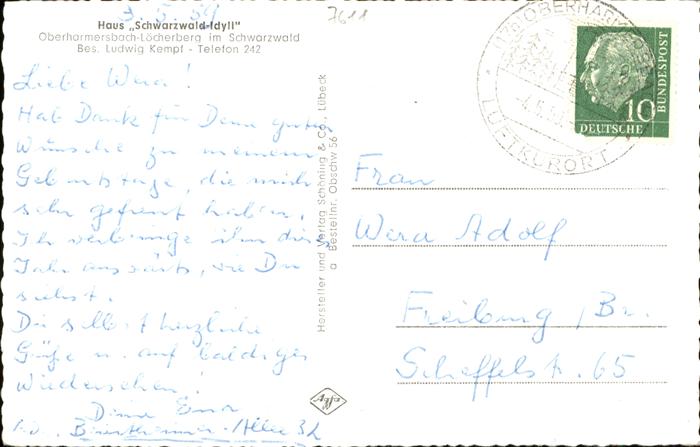 3. 5. 59
7611
Haus „Schwarzwald-Idyll"
Oberharmersbach-Löcherberg im Schwarzwald
Bes. Ludwig Kempf - Telefon 242
Liebe Wera!
Hab Dank für Deine guten
Wünsche zu meinem
Geburtstage, die mich
sehr gefreut haben.
Ich verbringe ihn dies
Jahr auswärts, wie Du
siehst.
Dir selbst herzliche
Grüße u. auf baldiges
Wiedersehen!
Deine
Allee 32
Hersteller und Verlag Schöning & Co., Lübeck
a Bestellnr. Obschw 56
Agfa
(17b) OBERHARMERSBACH
LUFTKURORT
10
DEUTSCHE
BUNDESPOST
Frau
Wera Adolf
Freiburg, Br.
Scheffelstr. 65